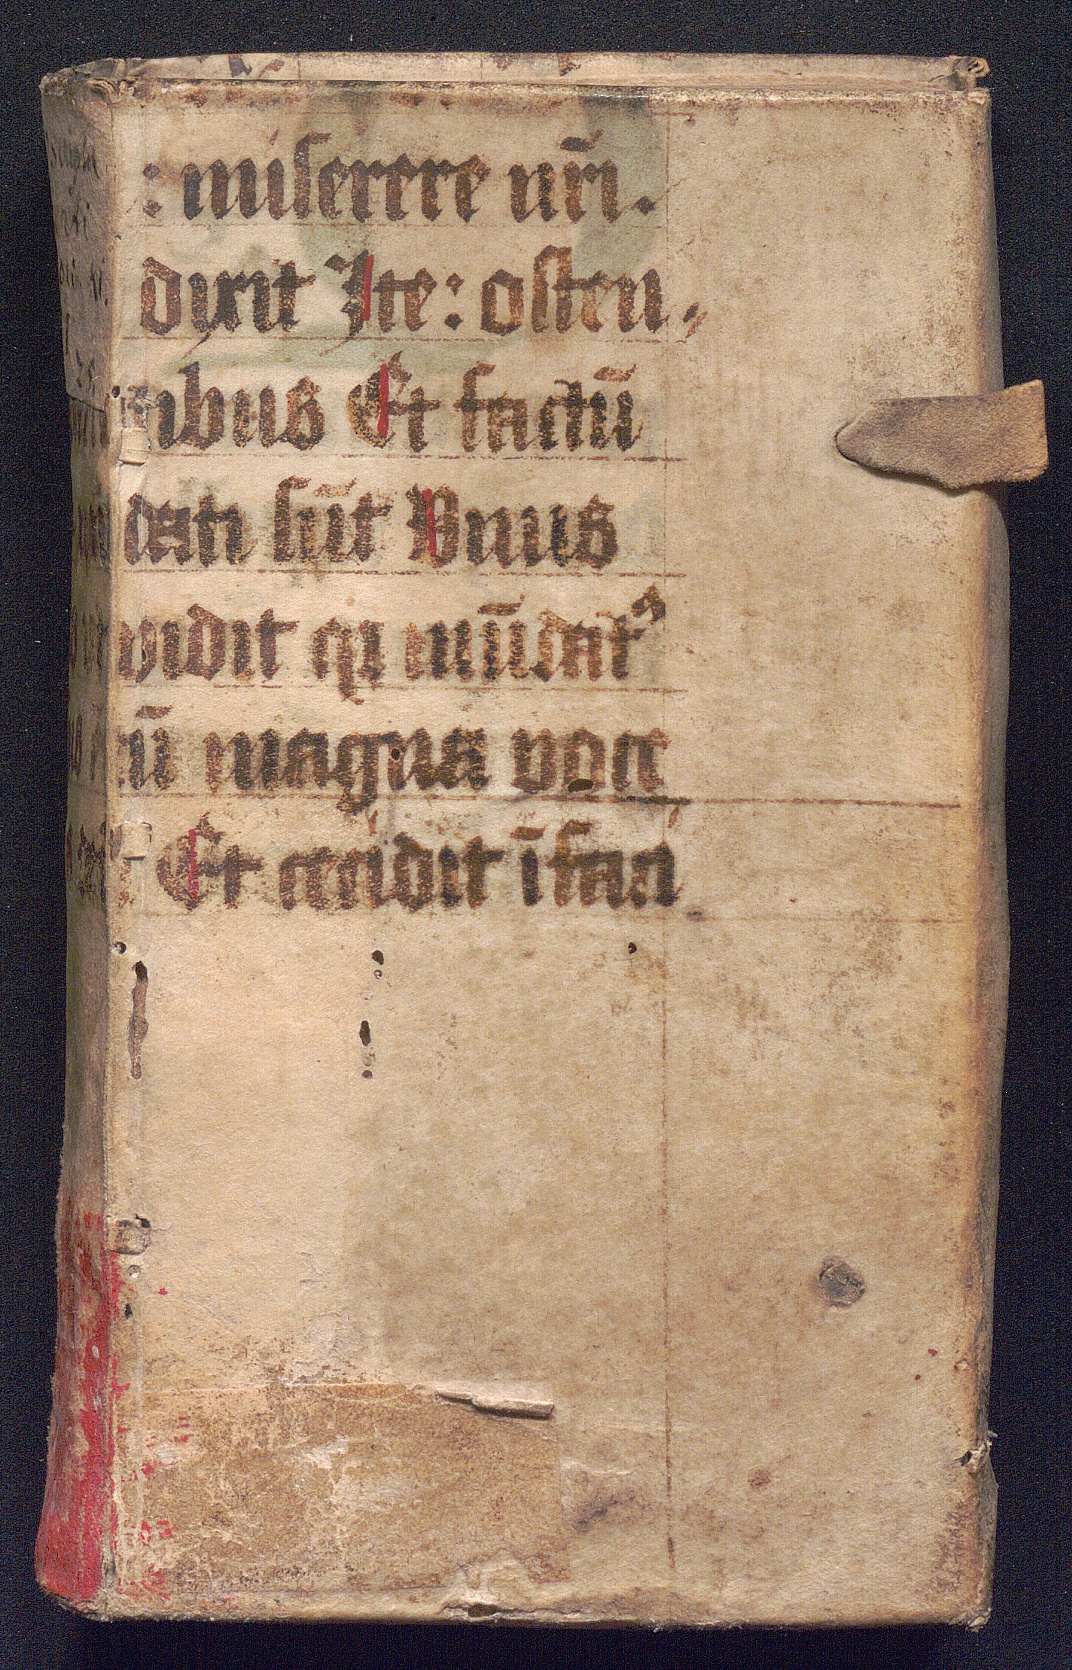 : miserere nr̄i.
dixit Ite: osten-
ibus Et factū
dati sūt Vnus
vidit qi mūdatꝰ
cū magna voce
Et cecidit ī faci